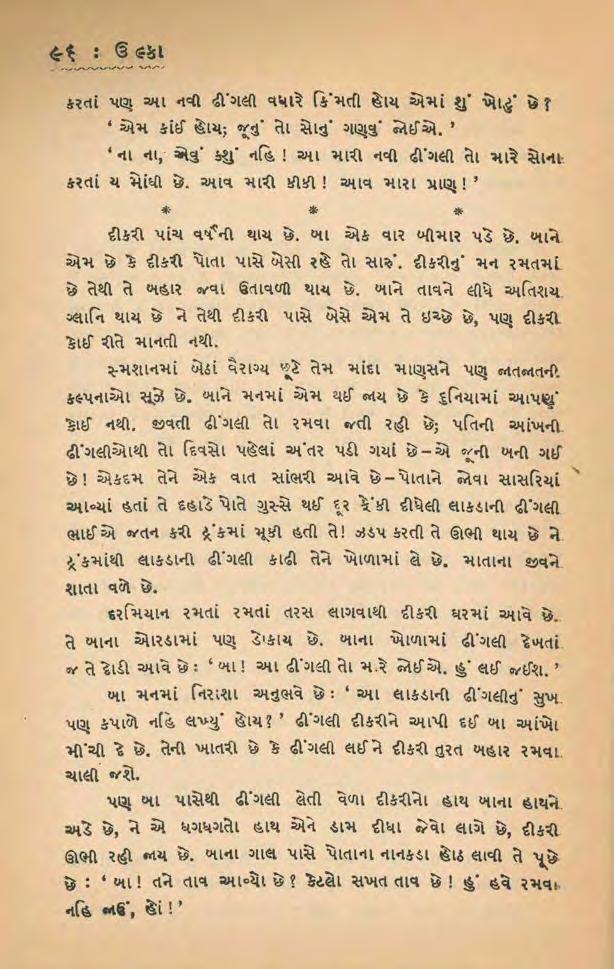 ૯૬ : ઉલ્કા
કરતાં પણ આ નવી ઢીંગલી વધારે કિંમતી હોય એમાં શું ખોટું છે?
‘ એમ કાંઈ હોય; જૂનું તો સોનું ગણવું જોઈએ. ’
‘ના ના, એવું કશું નહિ ! આ મારી નવી ઢીંગલી તો મારે સોના
કરતાં ય મોંઘી છે. આવ મારી કીકી ! આવ મારા પ્રાણ ! ’
* * *
દીકરી પાંચ વર્ષની થાય છે. બા એક વાર બીમાર પડે છે. બાને
એમ છે કે દીકરી પોતા પાસે બેસી રહે તો સારું. દીકરીનું મન રમતમાં
છે તેથી તે બહાર જવા ઉતાવળી થાય છે. બાને તાવને લીધે અતિશય
ગ્લાનિ થાય છે ને તેથી દીકરી પાસે બેસે એમ તે ઇચ્છે છે, પણ દીકરી
કોઈ રીતે માનતી નથી.
સ્મશાનમાં બેઠાં વૈરાગ્ય છૂટે તેમ માંદા માણસને પણ જાતજાતની
કલ્પનાઓ સૂઝે છે. બાને મનમાં એમ થઈ જાય છે કે દુનિયામાં આપણું
કોઈ નથી. જીવતી ઢીંગલી તો રમવા જતી રહી છે; પતિની આંખની
ઢીંગલીઓથી તો દિવસો પહેલાં અંતર પડી ગયાં છે – એ જૂની બની ગઈ
છે! એકદમ તેને એક વાત સાંભરી આવે છે – પોતાને જોવા સાસરિયાં
આવ્યાં હતાં તે દહાડે પોતે ગુસ્સે થઈ દૂર ફેંકી દીધેલી લાકડાની ઢીંગલી
ભાઈએ જતન કરી ટ્રંકમાં મૂકી હતી તે! ઝડપ કરતી તે ઊભી થાય છે ને
ટ્રંકમાંથી લાકડાની ઢીંગલી કાઢી તેને ખોળામાં લે છે. માતાના જીવને
શાતા વળે છે.
દરમિયાન રમતાં રમતાં તરસ લાગવાથી દીકરી ઘરમાં આવે છે.
તે બાના ઓરડામાં પણ ડોકાય છે. બાના ખોળામાં ઢીંગલી દેખતાં
જ તે દોડી આવે છે : ‘ બા ! આ ઢીંગલી તો મારે જોઈએ. હું લઈ જઈશ. ’
બા મનમાં નિરાશા અનુભવે છે : ‘ આ લાકડાની ઢીંગલીનું સુખ
પણ કપાળે નહિ લખ્યું હોય? ’ ઢીંગલી દીકરીને આપી દઈ બા આંખો
મીંચી દે છે. તેની ખાતરી છે કે ઢીંગલી લઈને દીકરી તુરત બહાર રમવા
ચાલી જશે.
પણ બા પાસેથી ઢીંગલી લેતી વેળા દીકરીનો હાથ બાના હાથને
અડે છે, ને એ ધગધગતો હાથ એને ડામ દીધા જેવો લાગે છે, દીકરી
ઊભી રહી જાય છે. બાના ગાલ પાસે પોતાના નાનકડા હોઠ લાવી તે પૂછે
છે : ‘ બા ! તને તાવ આવ્યો છે? કેટલો સખત તાવ છે ! હું હવે રમવા
નહિ જાઉં, હોં ! ’